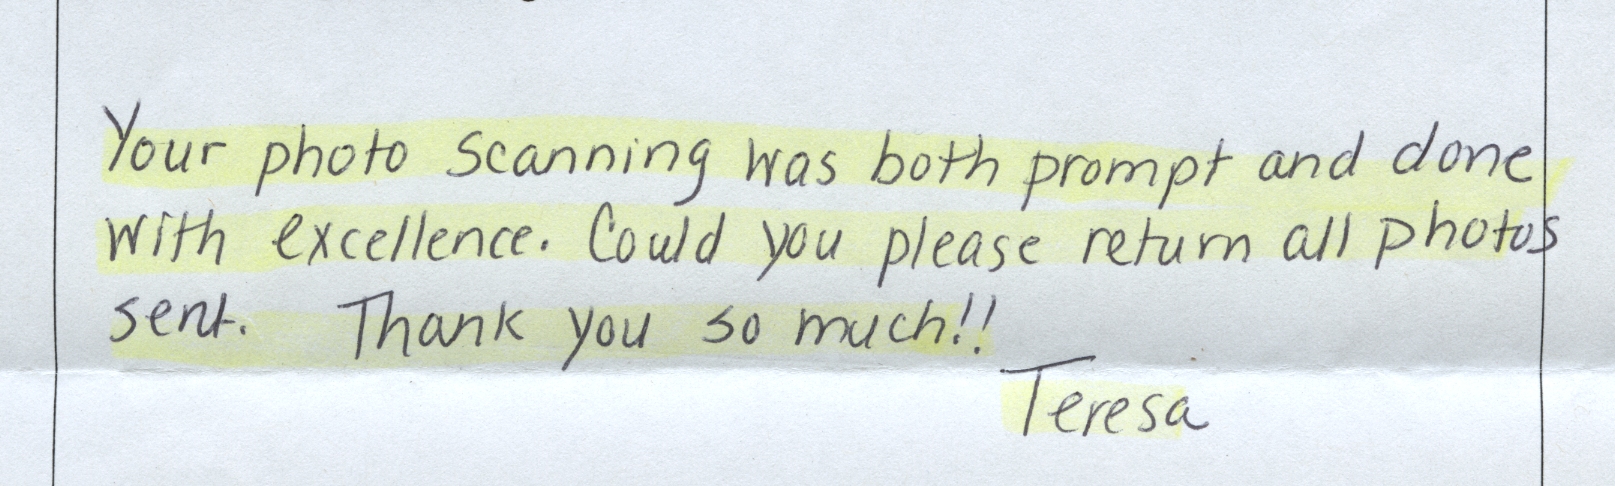 Your photo scanning was both prompt and done
with excellence. Could you please return all photos
sent. Thank you so much!!
Teresa